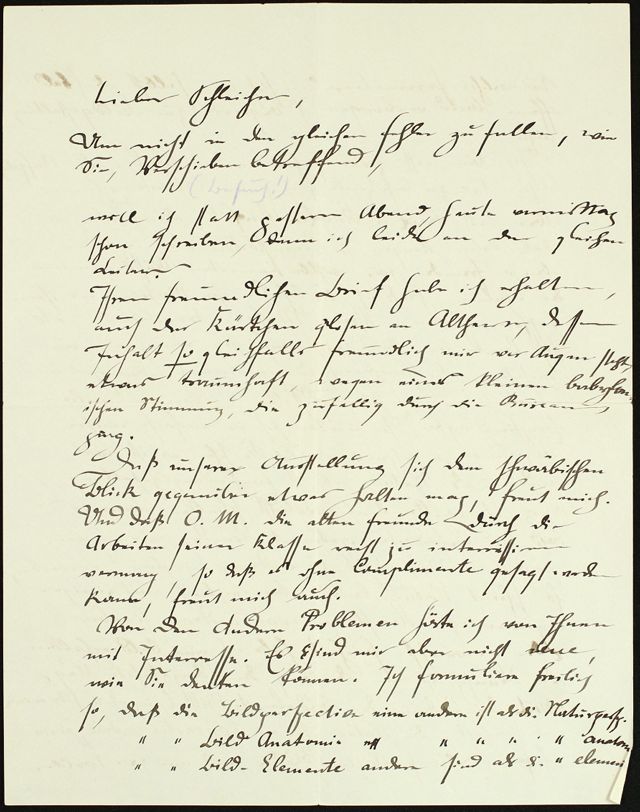 Lieber Schleicher,
Um nicht in den gleichen Fehler zu fallen, wie
Sie, Verschieben betreffend,
(Besuch!)
will ich statt gestern Abend, heute vormittag
schon schreiben, denn ich leide an den gleichen
Ihren freundlichen Brief habe ich erhalten,
auch das Kärtchen an Altherr, dessen
Inhalt so gleichfalls freundlich mir vor Augen steht,
etwas traumhaft, wegen einer kleinen babylon-
ischen Stimmung, die zufällig durch die Bureaux
ging.
Daß unsere Ausstellung sich dem schwäbischen
Blick gegenüber etwas halten mag, freut mich.
Und daß O. M. die alten Freunde durch die
Arbeiten seiner Klasse recht zu interessieren
vermag, so daß es ohne Complimente gesagt werden
kann, freut mich auch.
Von den andern Problemen hörte ich von Ihnen
mit Interesse. Es sind mir aber nicht neue,
wie Sie denken können. Ich formuliere freilich
so, daß die Bildperspective eine andere ist als die Naturpersp.
" " Bild Anatomie " " " " " anatom
" " Bild-Elemente andere sind als d. " elemen